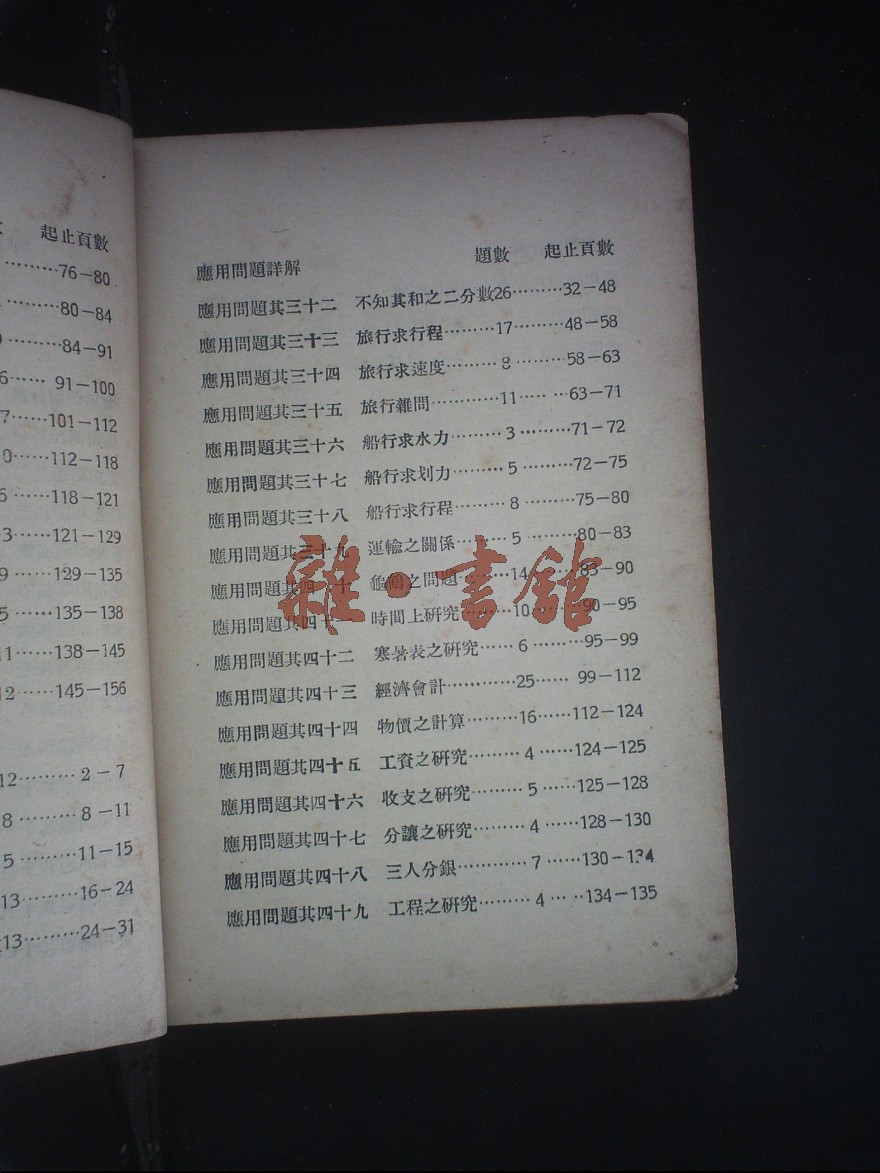 起止頁數
………76－80
80－84
………84－91
6…… 91－100
7……101－112
0……112－118
6……118－121
3……121－129
9……129－135
5……135－138
11……138－145
12……145－156
12……… 2－7
8……… 8－11
5………11－15
13………16－24
13………24－31
應用問題詳解 題數 起止頁數
應用問題其三十二 不知其和之二分數26………32－48
應用問題其三十三 旅行求行程………17………48－58
應用問題其三十四 旅行求速度……… 8 ………58－63
應用問題其三十五 旅行雜問…………11…… …63－71
應用問題其三十六 船行求水力……… 3 ………71－72
應用問題其三十七 船行求划力……… 5 ………72－75
應用問題其三十八 船行求行程……… 8 ………75－80
應用問題其三十九 運輸之關係……… 5 ………80－83
應用問題其四十 龜鶴之問題………14………83－90
應用問題其四十一 時間上研究………10………90－95
應用問題其四十二 寒暑表之研究…… 6 ………95－99
應用問題其四十三 經濟會計…………25…… 99－112
應用問題其四十四 物價之計算………16……112－124
應用問題其四十五 工資之研究……… 4 ……124－125
應用問題其四十六 收支之研究……… 5 ……125－128
應用問題其四十七 分讓之研究……… 4 ……128－130
應用問題其四十八 三人分銀………… 7 ……130－134
應用問題其四十九 工程之研究……… 4 … ‥134－135
雜·書館